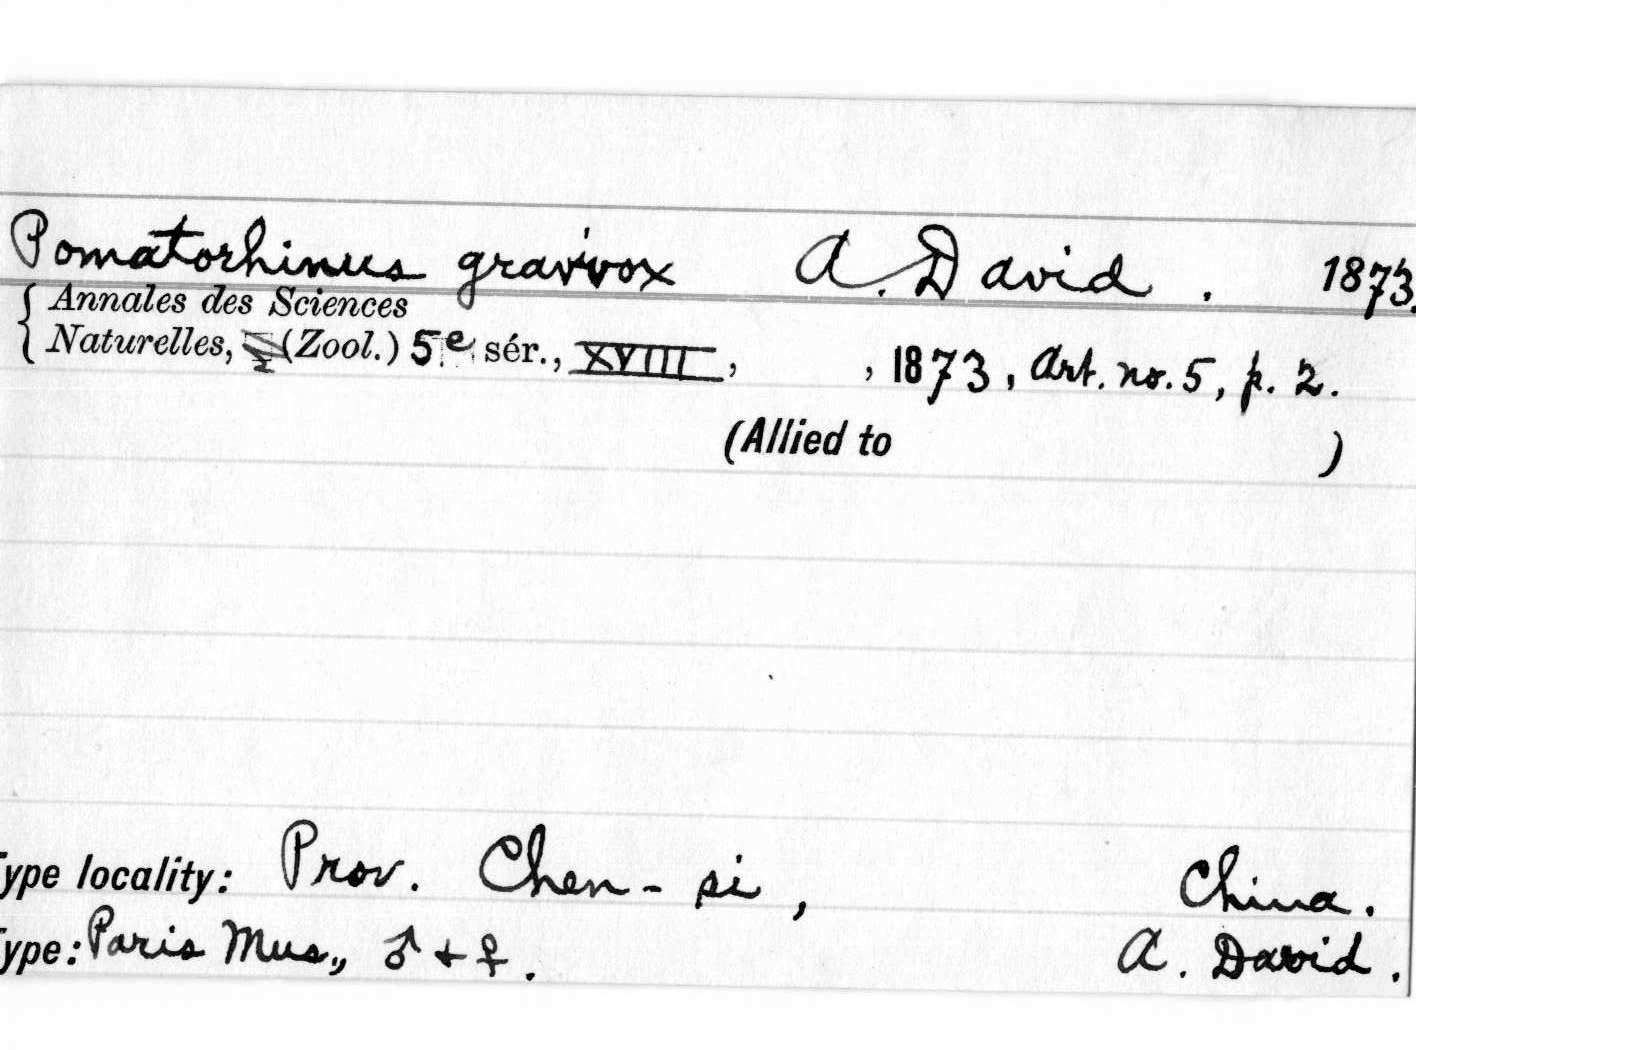 Pomatorhinus gravivox A. David. 1873.
{ Annales des Sciences
Naturelles, (Zool.) 5e sér., XVIII, , 1873, Art. no. 5, p. 2.
(Allied to )
Type locality: Prov. Chen-si, China.
Type: Paris Mus., ♂ + ♀. A. David.